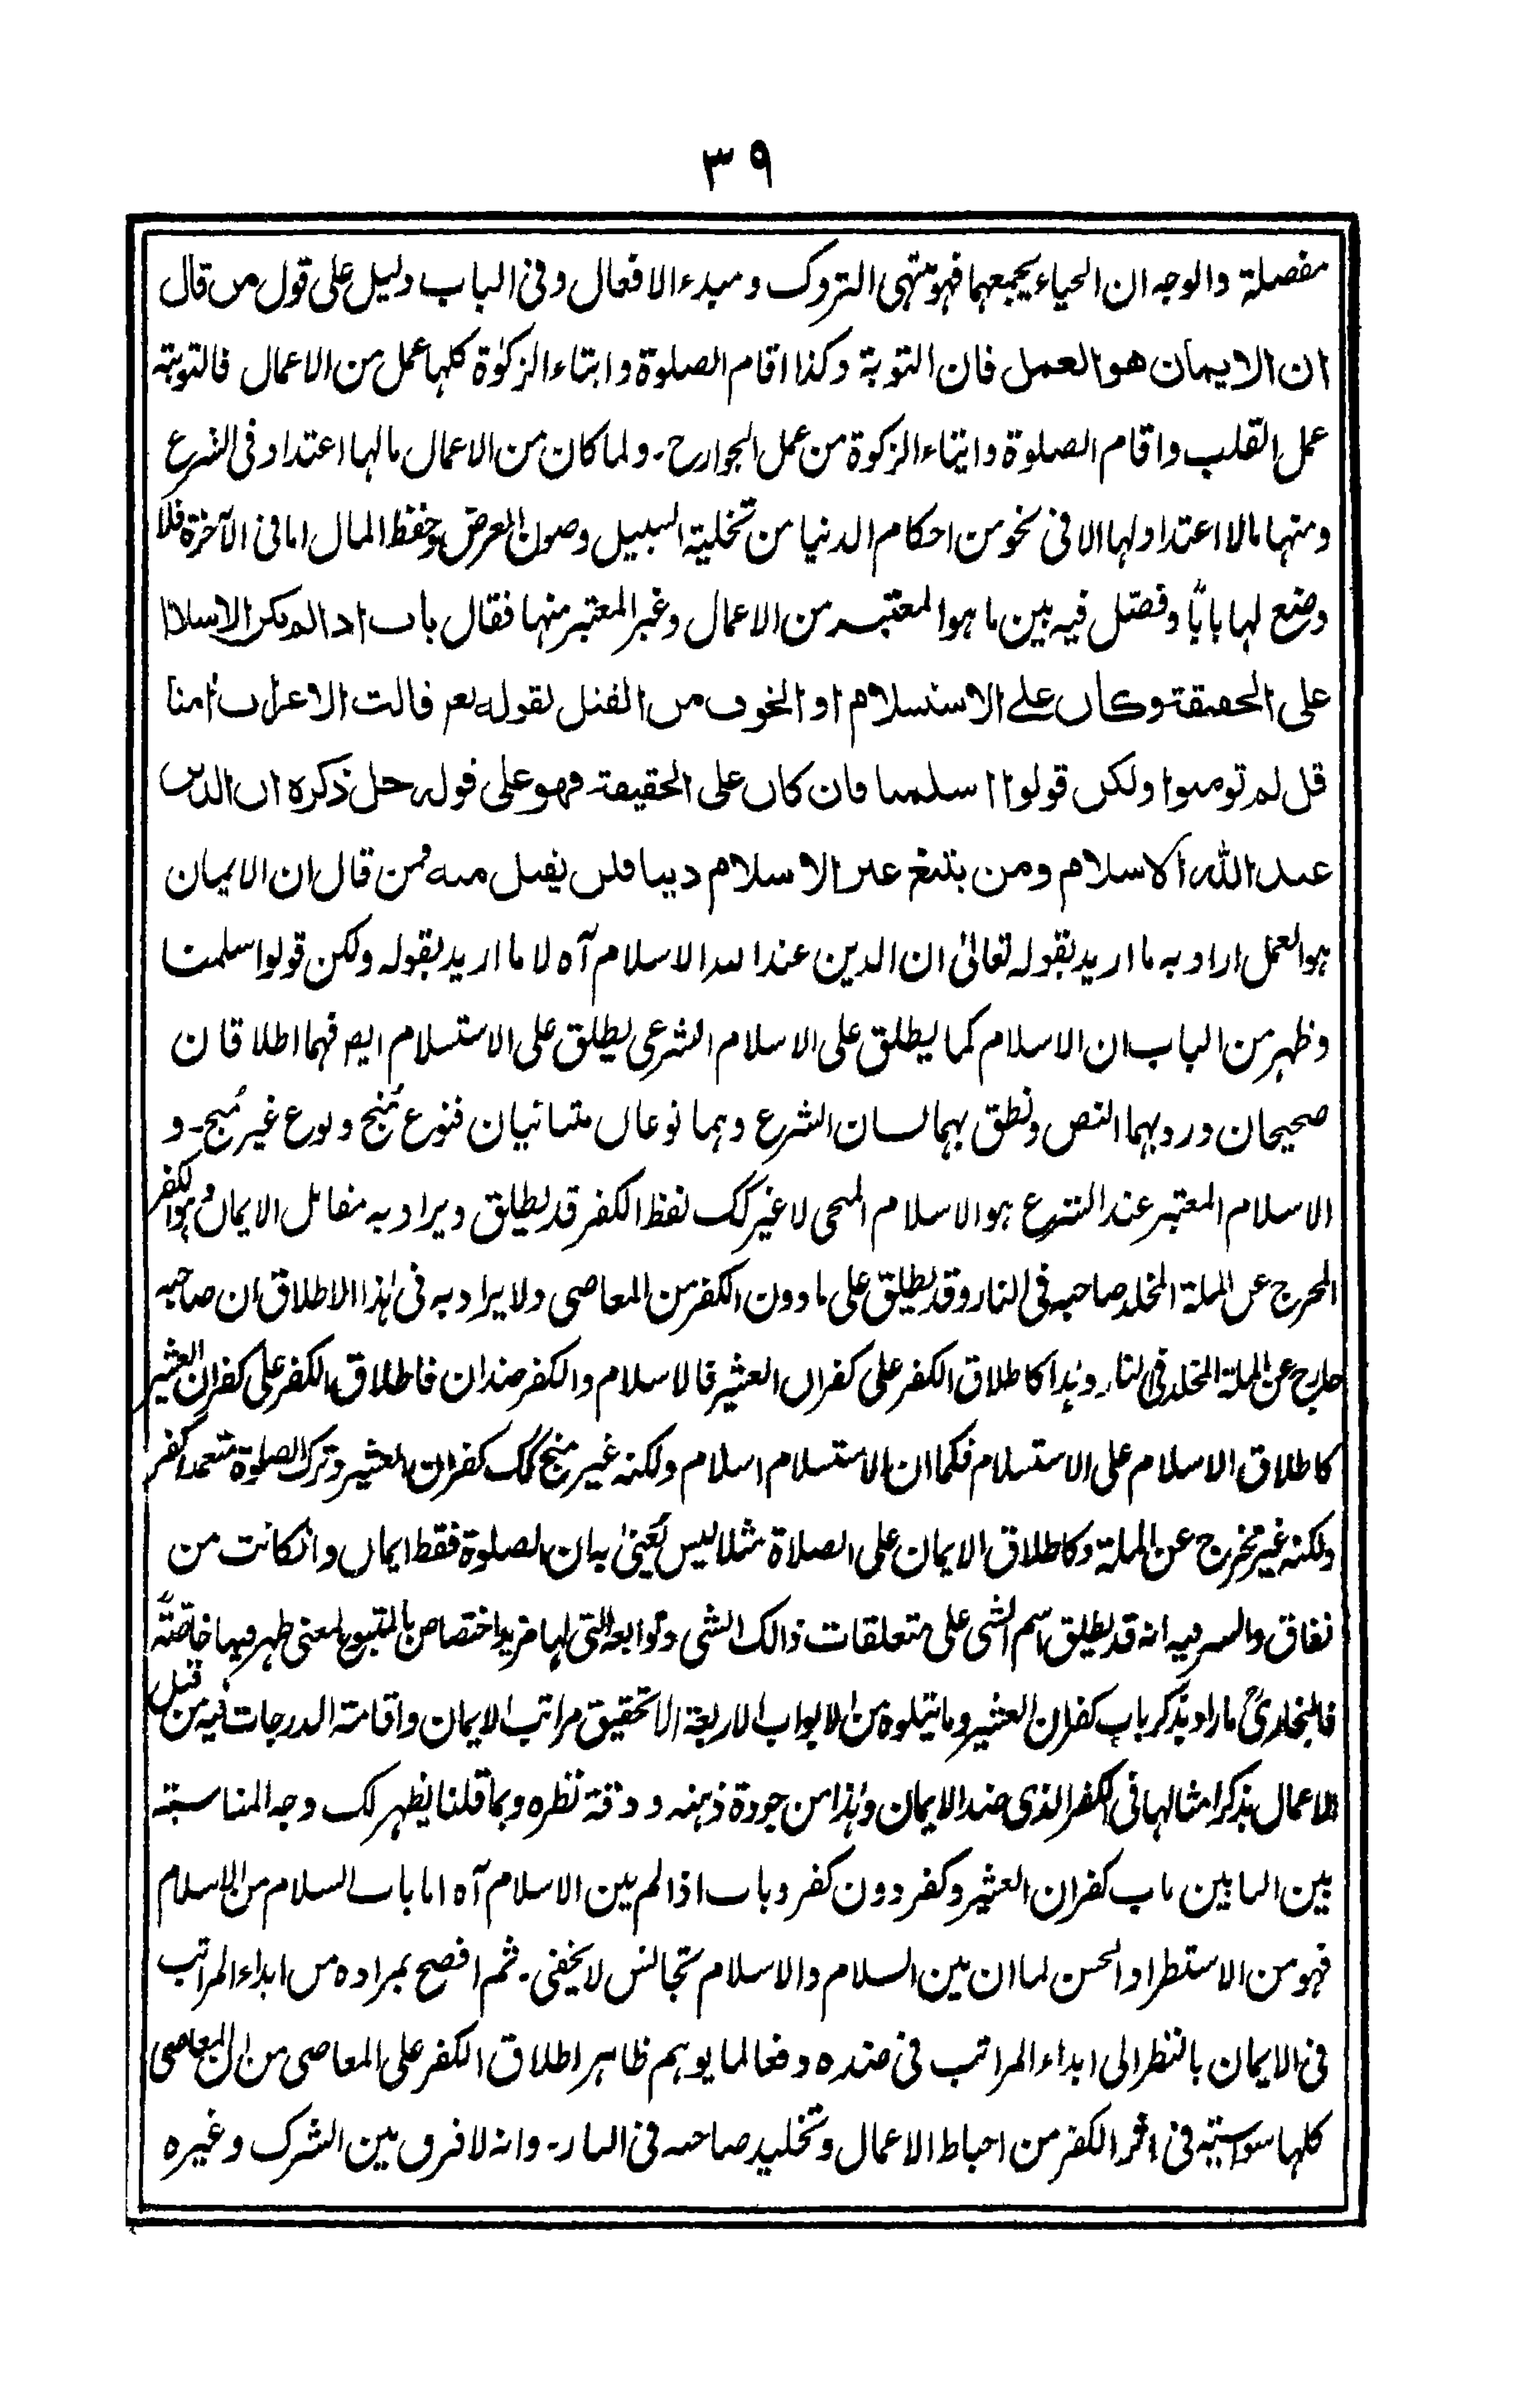 ٣٩
مفصلة والوجه ان الحياء يجمعهما فهو منتهى التروك ومبدء الافعال وفى الباب دليل على قول من قال
ان الايمان هو العمل فان التوبة وكذا اقام الصلوة وايتاء الزكوٰة كلها عمل من الاعمال فالتوبة
عمل القلب واقام الصلوة وايتاء الزكوة من عمل الجوارح۔ ولما كان من الاعمال مالها اعتداد فى الشرع
ومنها مالا اعتداد لها الا فى نحو من احكام الدنيا من تخلية السبيل وصون العرض وحفظ المال اما فى الآخرة فلا
وضع لها بابًا وفصّل فيه بين ما هو المعتبر من الاعمال وغير المعتبر منها فقال باب اذا لم يكن الاسلام
على الحقيقة وكان على الاستسلام او الخوف من القتل لقوله تعر قالت الاعراب اٰمنا
قل لم تومنوا ولكن قولوا اسلمنا فان كان على الحقيقة فهو على قوله جل ذكره ان الدين
عند الله الاسلام ومن يبتغ غير الاسلام دينا فلن يقبل منه فمن قال ان الايمان
هو العمل اراد به ما اريد بقوله تعالىٰ ان الدين عند الله الاسلام آه لا ما اريد بقوله ولكن قولوا اسلمنا
وظهر من الباب ان الاسلام كما يطلق على الاسلام الشرعى يطلق على الاستسلام ايضا فهما اطلاقان
صحيحان ورد بهما النص ونطق بهما لسان الشرع وهما نوعان متبائنيان فنوع مُنج ونوع غير مُنج۔ و
الاسلام المعتبر عند الشرع هو الاسلام المنجى لا غير كك لفظ الكفر قد يطلق ويراد به مقابل الايمان وهو الكفر
المخرج عن الملة المخلد صاحبه فى النار وقد يطلق على مادون الكفر من المعاصى ولا يراد به فى هٰذا الاطلاق ان صاحبه
خارج عن الملة المخلد فى النار وهٰذا كاطلاق الكفر على كفران العشير فالاسلام والكفر ضدان فاطلاق الكفر على كفران العشير
كاطلاق الاسلام على الاستسلام فكما ان الاستسلام اسلام ولكنه غير منج كك كفران العشير وترك الصلوة متعمدا كفر
ولكنه غير مخرج عن الملة وكاطلاق الايمان على الصلاة مثلا ليس يَعنىٰ به ان الصلوة فقط ايمان وانكانت من
نفاق والسر فيه انه قد يطلق اسم الشى على متعلقات ذالك الشى وتوابعه التى لها مزيد اختصاص بالمتبوع لمعنى ظهر فيها خاصّةً
فالبخارىؒ ما اراد بذكر باب كفران العشير وما يتلوه من الابواب الاربعة الا تحقيق مراتب الايمان واقامة الدرجات فيه من قبل
الاعمال بذكر امثالها فى الكفر الذى ضد الايمان وهٰذا من جودة ذهنه ودقة نظره وبما قلنا يظهر لك وجه المناسبة
بين البابين باب كفران العشير وكفر دون كفر وباب اذا لم يبن الاسلام آه اما باب السلام من الاسلام
فهو من الاستطراد الحسن لما ان بين السلام والاسلام تجانس لا يخفى۔ ثم افصح بمراده من ابداء المراتب
فى الايمان بالنظر الى ابداء المراتب فى ضده دفعا لما يوهم ظاهر اطلاق الكفر على المعاصى من ان المعاصى
كلها سواسية فى اثر الكفر من احباط الاعمال وتخليد صاحبه فى النار۔ وانه لا فرق بين الشرك وغيره